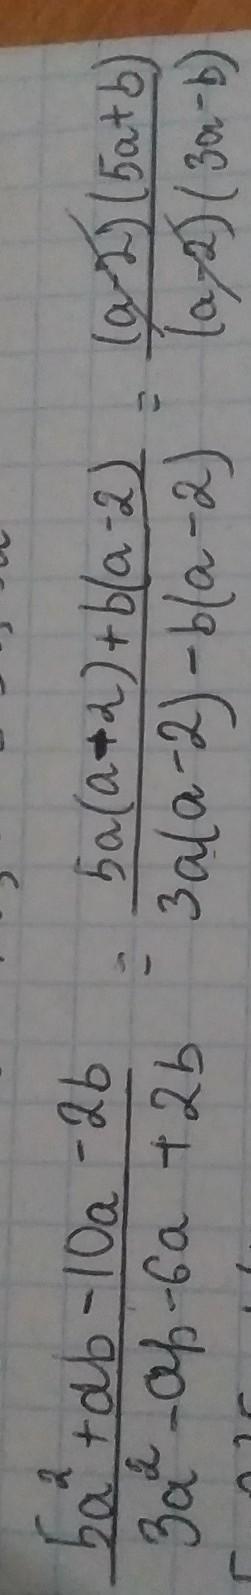 (5a² + ab - 10a - 2b)/(3a² - ab - 6a + 2b) = (5a(a-2) + b(a-2))/(3a(a-2) - b(a-2)) = ((a-2)(5a+b))/((a-2)(3a-b))